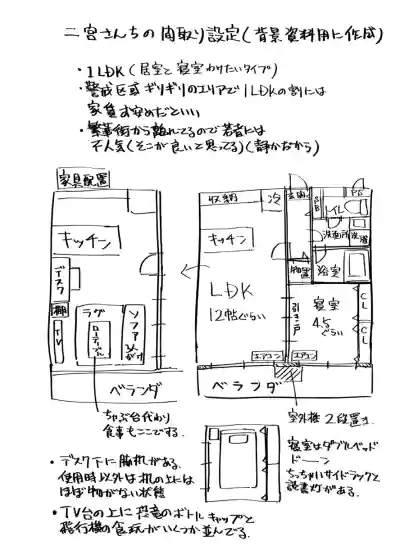 二宮さんちの間取り設定(背景資料用に作成)
・1LDK(居室と寝室わけたいタイプ)
・警戒区域ギリギリのエリアで1LDKの割には
家賃お安めだといい
・繁華街から離れてるので若者には
不人気(そこが良いと思ってる)(静かだから)
家具配置
キッチン
デスク
棚
TV
ラグ
ローテーブル
ソファ
ベランダ
ちゃぶ台代わり
食事もここでする。
収納
冷
玄関
SB
トイレ
PS
洗面所
洗濯
キッチン
物置
浴室
LDK
12帖ぐらい
引き戸
寝室
4.5
ぐらい
CL
CL
エアコン
エアコン
ベランダ
室外機2段置き
寝室はダブルベッド
ドーン
ちっちゃいサイドラックと
読書灯がある。
・デスク下に脇机がある。
使用時以外は机の上には
ほぼ物がない状態
・TV台の上に恐竜のボトルキャップと
飛行機の食玩がいくつか並んでる。